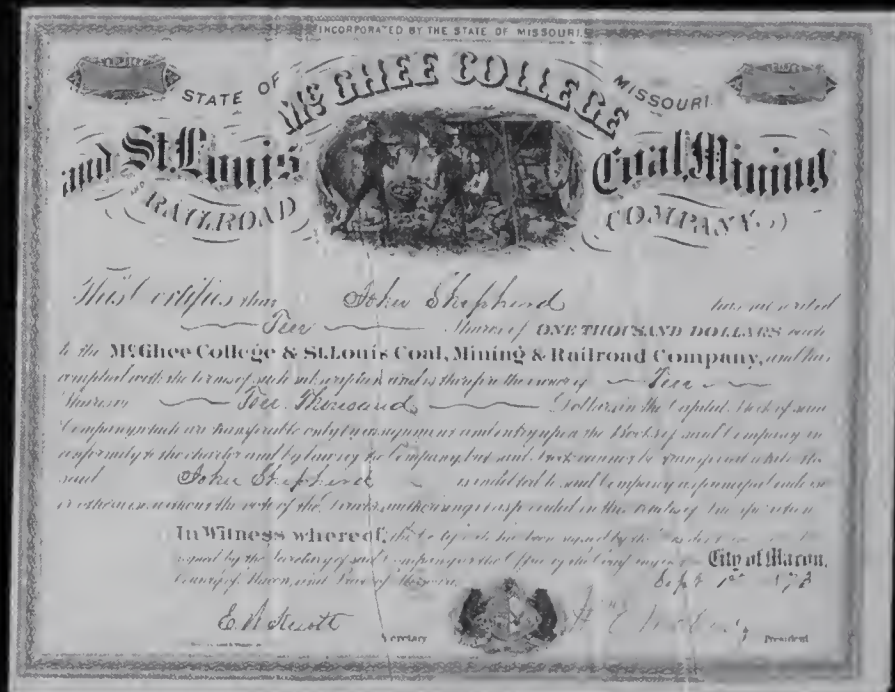 INCORPORATED BY THE STATE OF MISSOURI.
STATE OF McGHEE COLLEGE MISSOURI.
and St. Louis Coal, Mining
AND RAILROAD COMPANY
This Certifies that John Shepherd has subscribed
Ten Shares of ONE THOUSAND DOLLARS each
to the McGhee College & St. Louis Coal, Mining & Railroad Company, and has
complied with the terms of such subscription and is therefore the owner of Ten
Shares Ten Thousand Dollars in the Capital Stock of said
Company which are transferable only by assignment and entry upon the Books of said Company in
conformity to the charter and by laws of the Company, but said stock cannot be transferred while the
said John Shepherd is indebted to said Company as principal
or otherwise, without the vote of the
In Witness whereof, the has been signed by the
signed by the Secretary of said Company at the Office of the Company in the City of Macon,
County of Macon, and State of Missouri
Sept 1st 187
Secretary President